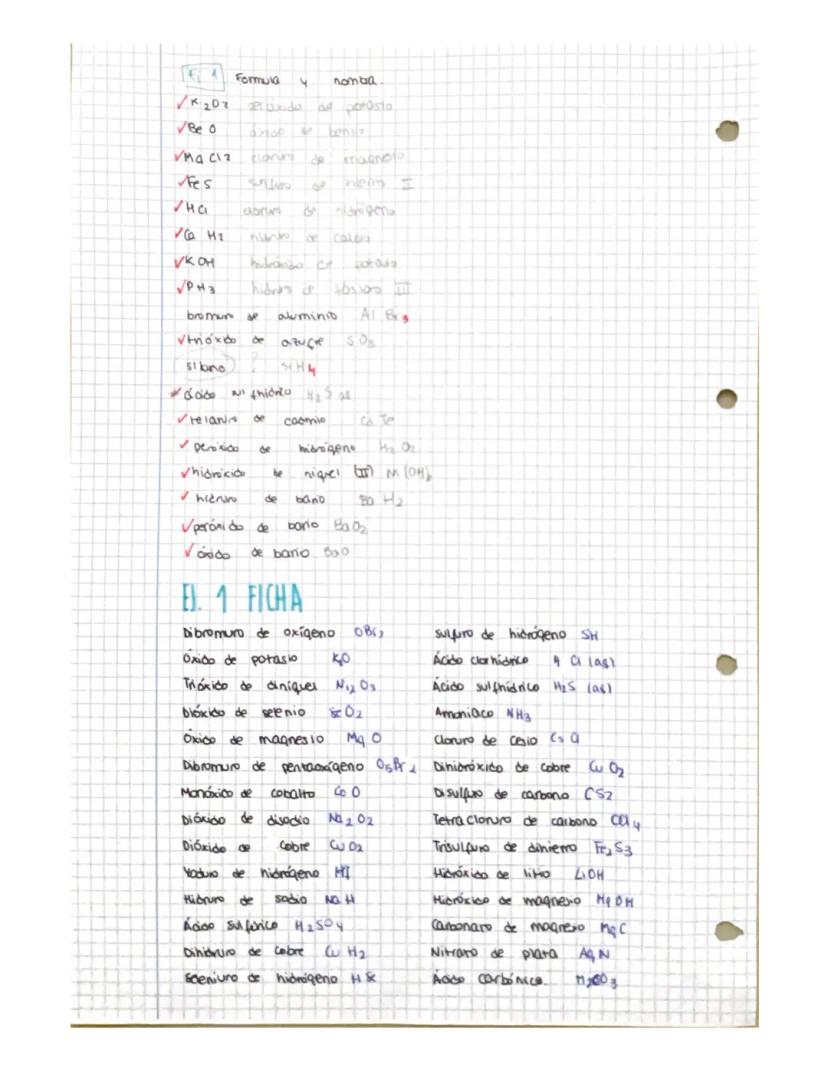 Ej 1 Formula y nombra.
K2O2 peróxido de potasio
BeO óxido de berilio
MgCl2 cloruro de magnesio
FeS sulfuro de hierro II
HCl cloruro de hidrógeno
CaH2 hidruro de calcio
KOH hidróxido de potasio
PH3 hidruro de fósforo III
bromuro de aluminio AlBr3
trióxido de azufre SO3
silano ? SiH4
ácido sulfhídrico H2S
telururo de cadmio CdTe
peróxido de hidrógeno H2O2
hidróxido de niquel (II) Ni(OH)2
hidruro de bario BaH2
peróxido de bario BaO2
óxido de bario BaO
EJ. 1 FICHA
Dibromuro de oxígeno OBr2
Óxido de potasio K2O
Trióxido de diniquel Ni2O3
Dióxido de selenio SeO2
Óxido de magnesio MgO
Dibromuro de pentaoxígeno O5Br2
Monóxido de cobalto CoO
Dióxido de disodio Na2O2
Dióxido de cobre CuO2
Yoduro de hidrógeno HI
Hidruro de sodio NaH
Ácido sulfúrico H2SO4
Dihidruro de cobre CuH2
Seleniuro de hidrógeno HSe
Sulfuro de hidrógeno SH
Ácido clorhídrico HCl (aq)
Ácido sulfhídrico H2S (aq)
Amoniaco NH3
Cloruro de cesio CsCl
Dihidróxido de cobre CuO2
Disulfuro de carbono CS2
Tetracloruro de carbono CCl4
Trisulfuro de dihierro Fe2S3
Hidróxido de litio LiOH
Hidróxido de magnesio MgOH
Carbonato de magnesio MgC
Nitrato de plata AgN
Ácido carbónico. H2CO3